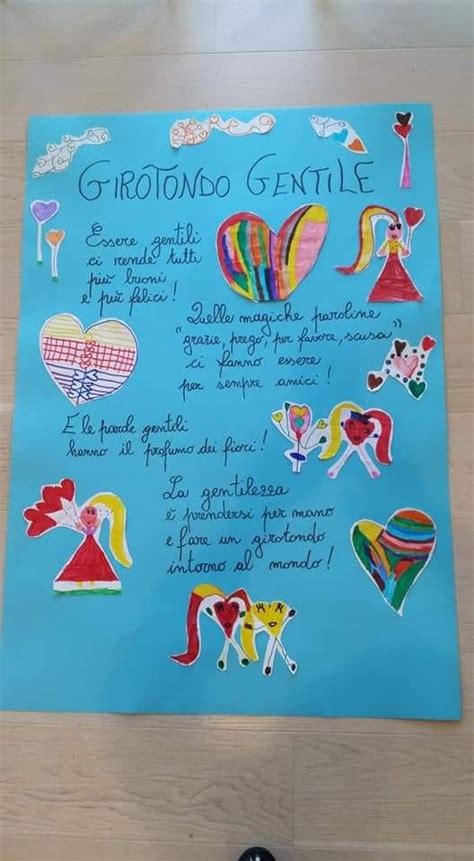 GIROTONDO GENTILE
Essere gentili
ci rende tutti
più buoni
e più felici!
Quelle magiche paroline
"grazie, prego, per favore, scusa"
ci fanno essere
per sempre amici!
E le parole gentili
hanno il profumo dei fiori!
La gentilezza
è prendersi per mano
e fare un girotondo
intorno al mondo!